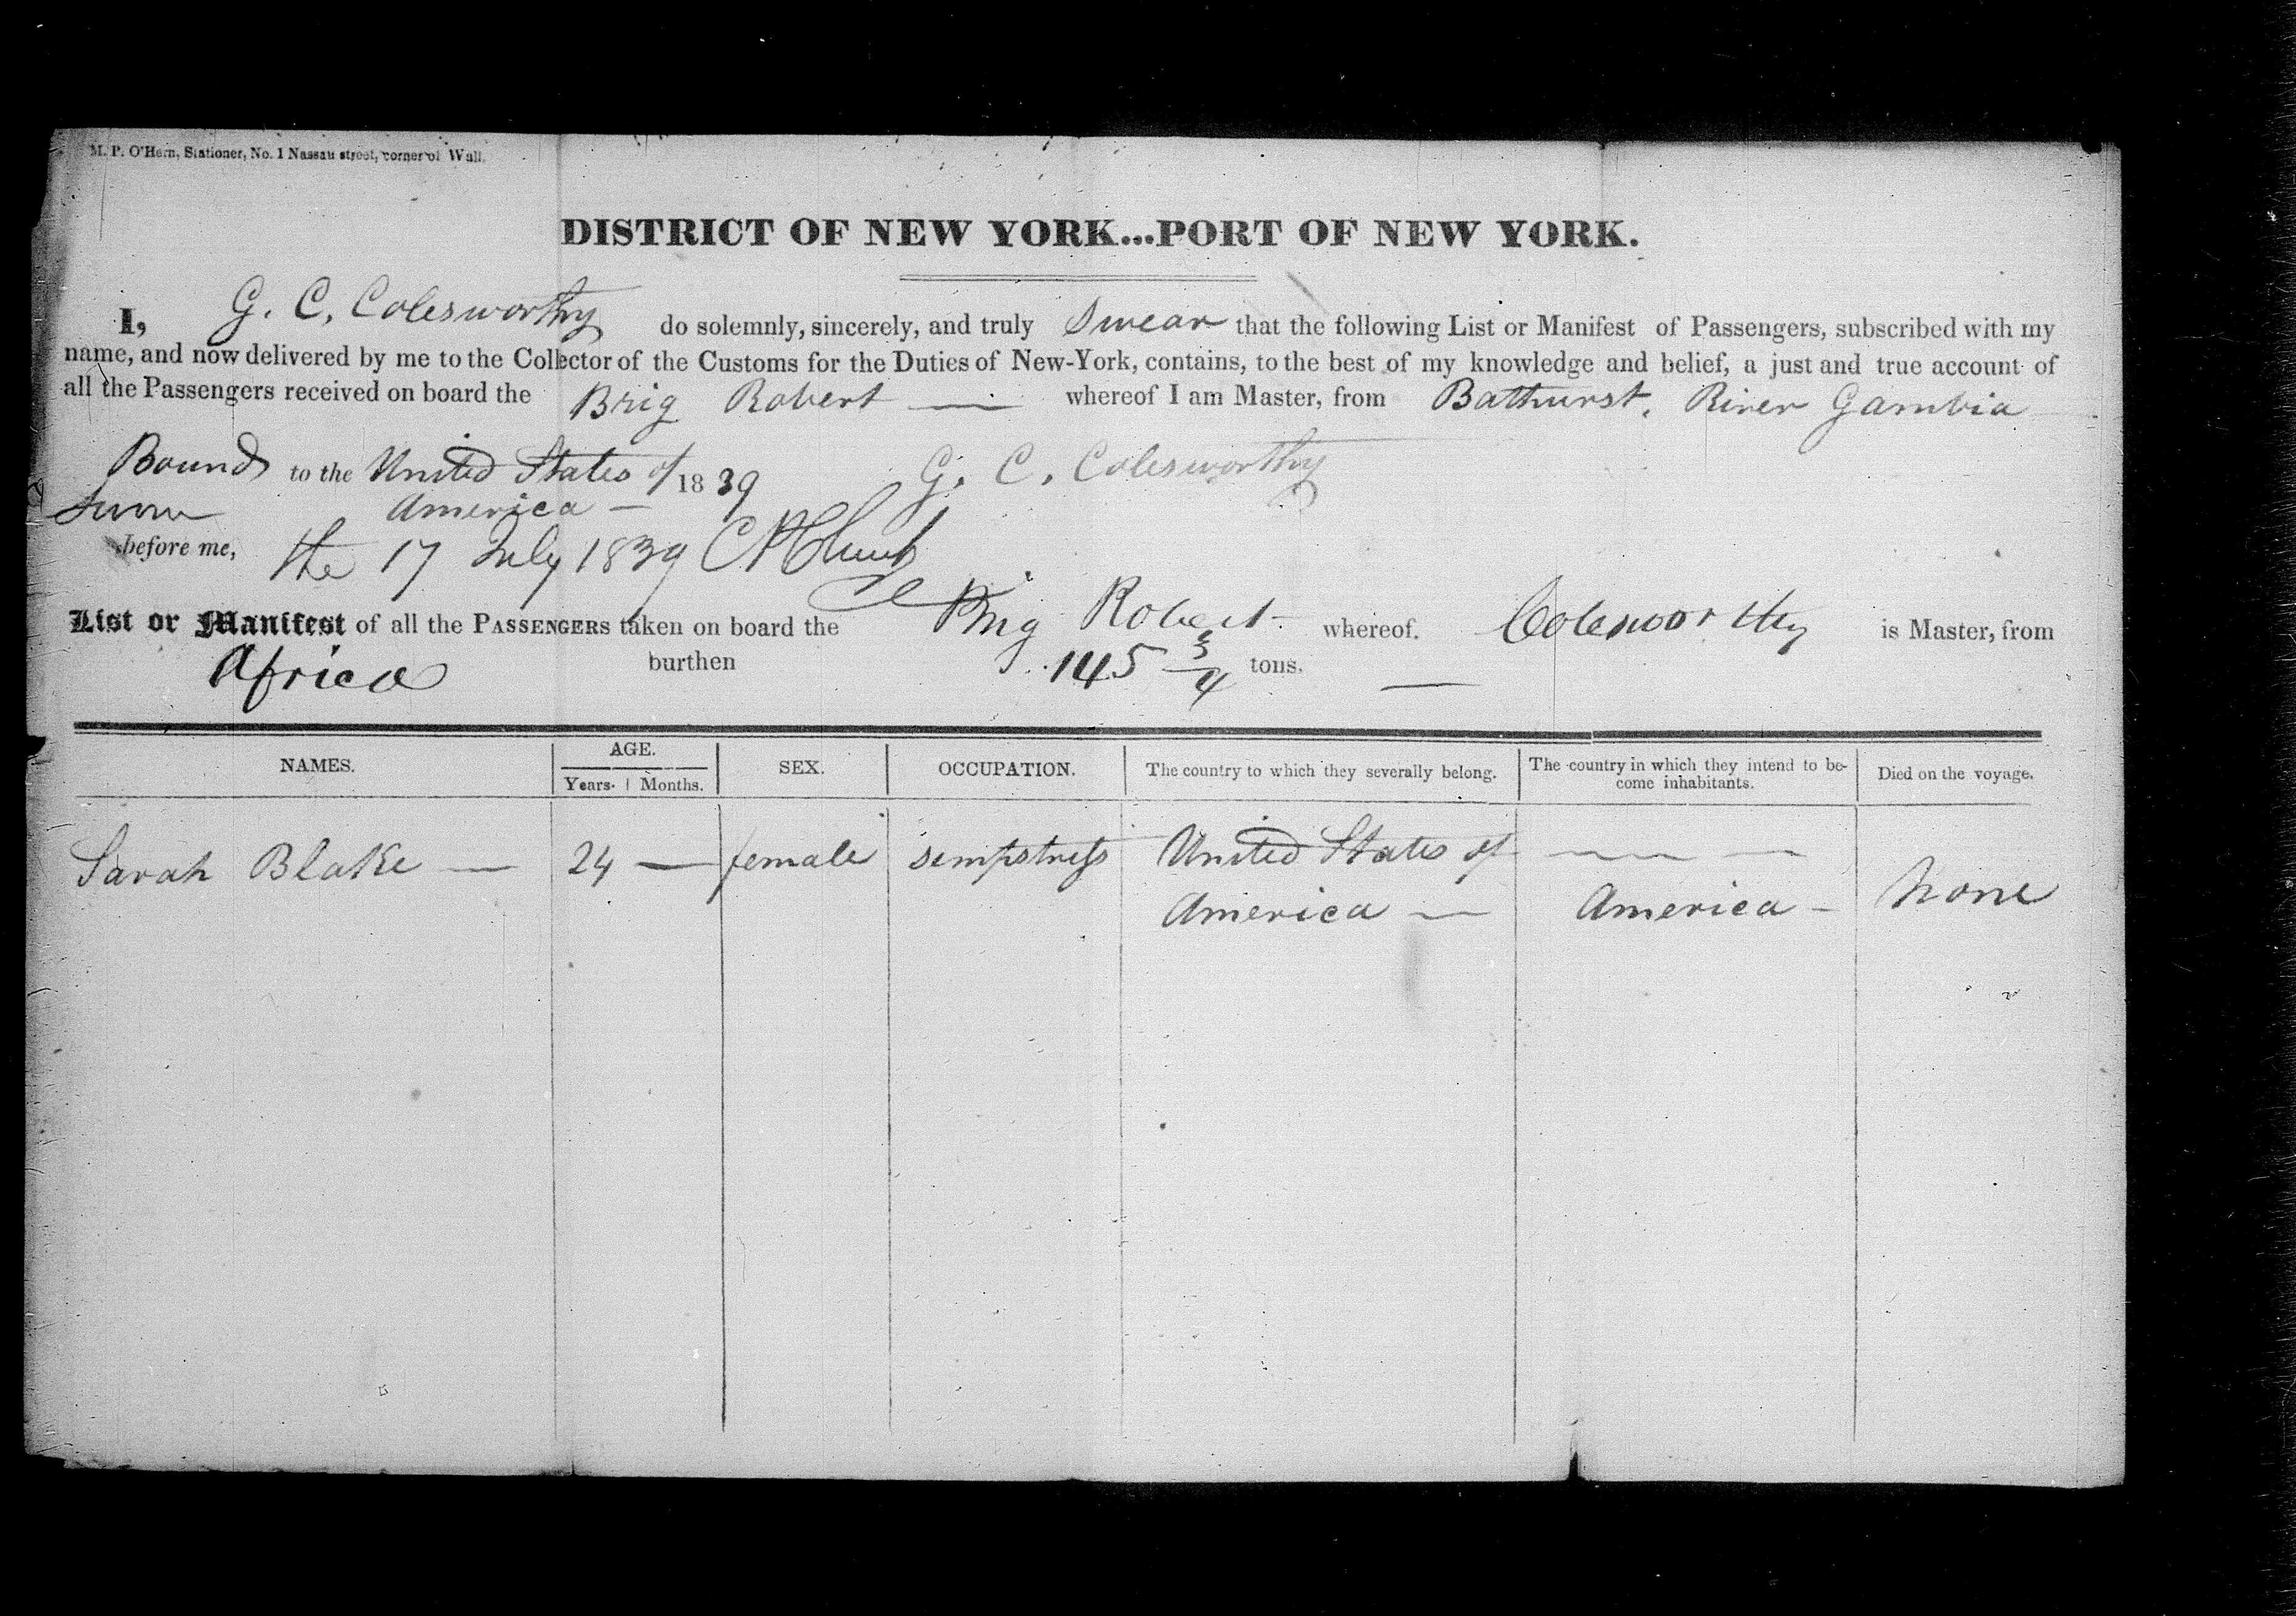 M. P. O'Hern, Stationer, No. 1 Nassau street, corner of Wall.
DISTRICT OF NEW YORK...PORT OF NEW YORK.
I, G. C. Colesworthy do solemnly, sincerely, and truly Swear that the following List or Manifest of Passengers, subscribed with my
name, and now delivered by me to the Collector of the Customs for the Duties of New-York, contains, to the best of my knowledge and belief, a just and true account of
all the Passengers received on board the Brig Robert — whereof I am Master, from Bathurst, River Gambia
Bound to the United States of 1839 G. C. Colesworthy
Sworn America —
before me, the 17 July 1839
List or Manifest of all the PASSENGERS taken on board the Brig Robert whereof. Colesworthy is Master, from
Africa burthen 145 3/4 tons. —
NAMES. AGE. SEX. OCCUPATION. The country to which they severally belong. The country in which they intend to be- Died on the voyage.
Years. Months. come inhabitants.
Sarah Blake — 24 — female sempstress United States of — — —
America — America — None